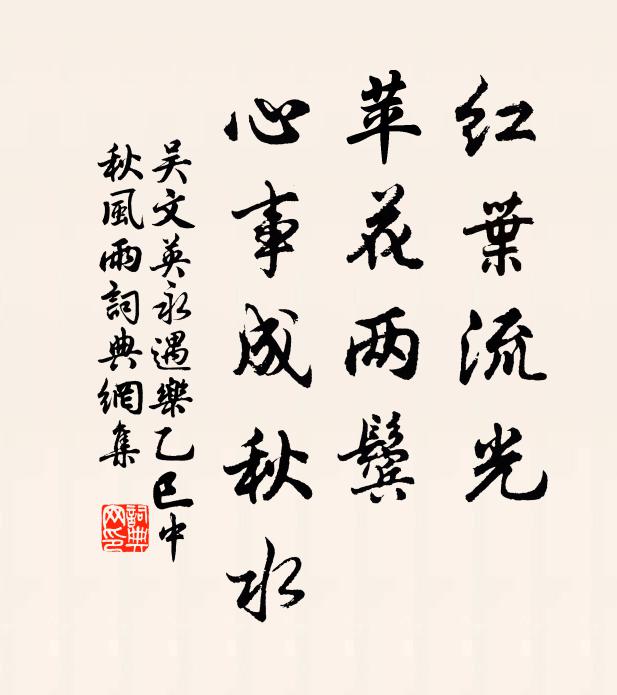 红葉流光
苹花两鬓
心事成秋水
吴文英永遇樂乙巳中
秋風雨詞典網集
詞典
网印